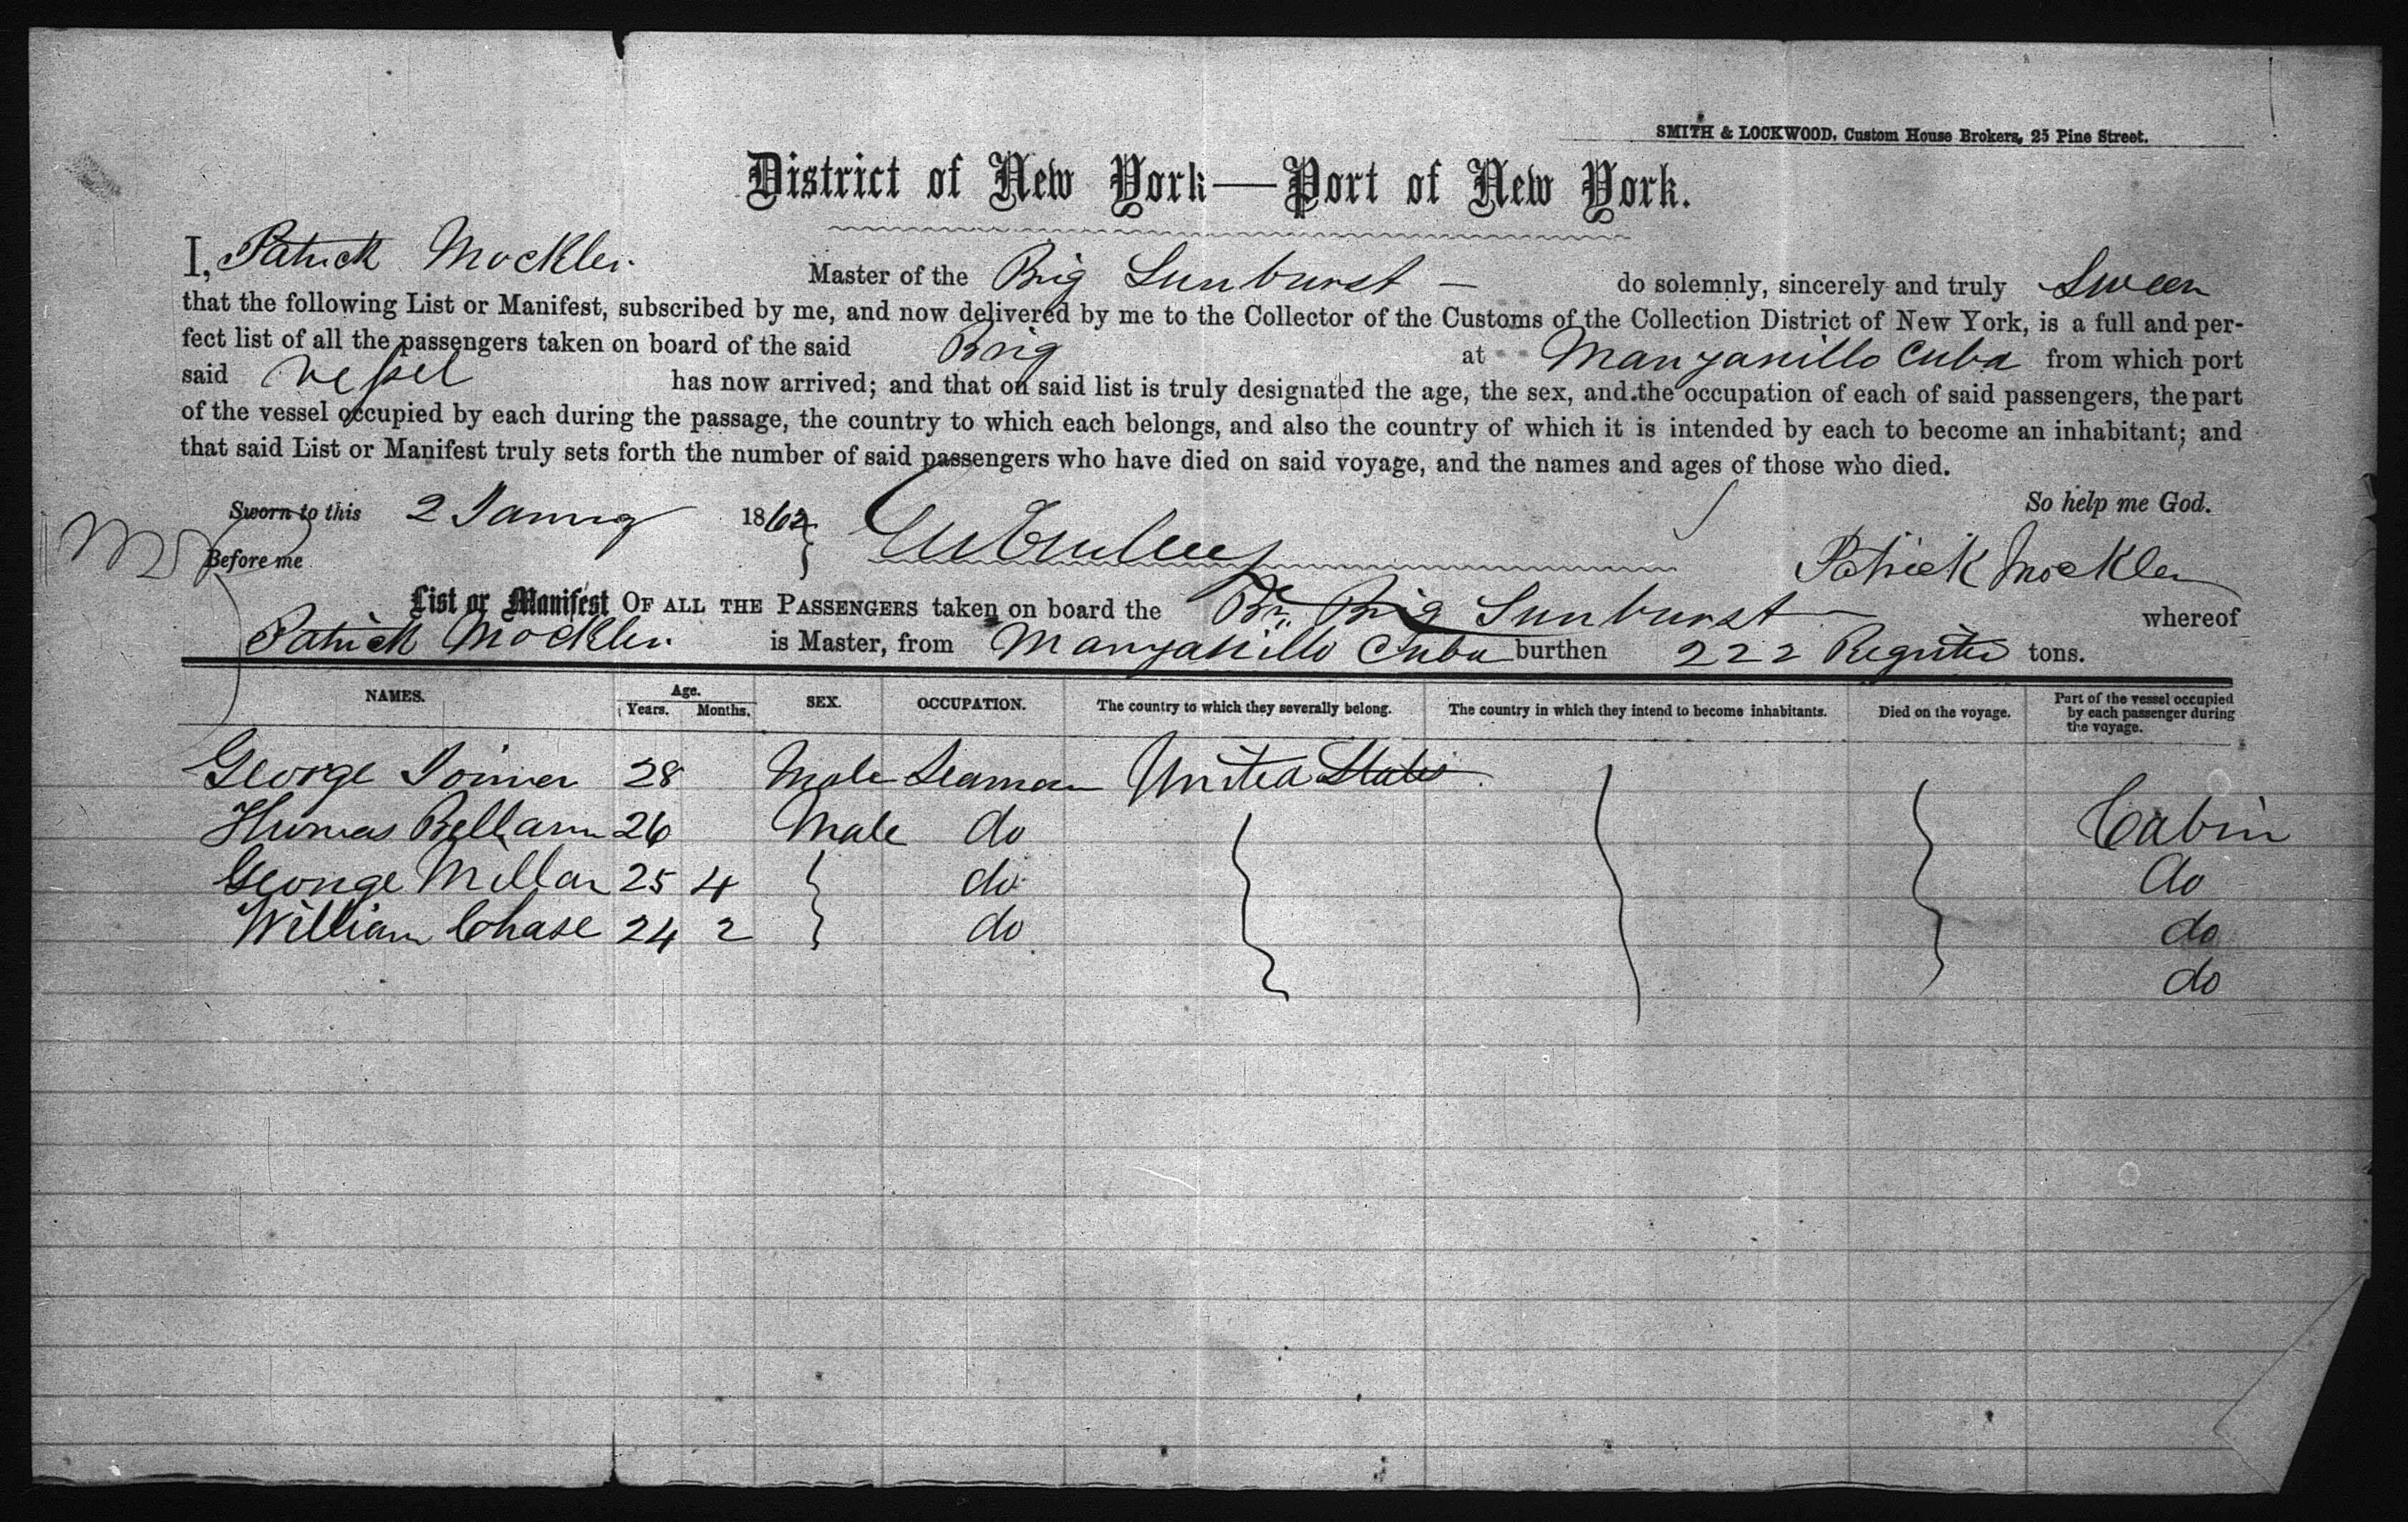 SMITH & LOCKWOOD, Custom House Brokers, 25 Pine Street.
District of New York—Port of New York.
I, Patrick Mockler Master of the Brig Sunburst — do solemnly, sincerely and truly Swear
that the following List or Manifest, subscribed by me, and now delivered by me to the Collector of the Customs of the Collection District of New York, is a full and per-
fect list of all the passengers taken on board of the said Brig at Manzanillo Cuba from which port
said vessel has now arrived; and that on said list is truly designated the age, the sex, and the occupation of each of said passengers, the part
of the vessel occupied by each during the passage, the country to which each belongs, and also the country of which it is intended by each to become an inhabitant; and
that said List or Manifest truly sets forth the number of said passengers who have died on said voyage, and the names and ages of those who died.
So help me God.
Sworn to this 2 January 1862
Before me Patrick Mockler
List or Manifest OF ALL THE PASSENGERS taken on board the Br. Brig Sunburst whereof
Patrick Mockler is Master, from Manzanillo Cuba burthen 222 Register tons.
NAMES. Age. Years. Months. SEX. OCCUPATION. The country to which they severally belong. The country in which they intend to become inhabitants. Died on the voyage. Part of the vessel occupied by each passenger during the voyage.
George Joiner 28 Male Seaman United States
Thomas Bellam 26 Male do Cabin
George Millar 25 4 do do
William Chase 24 2 do do
do